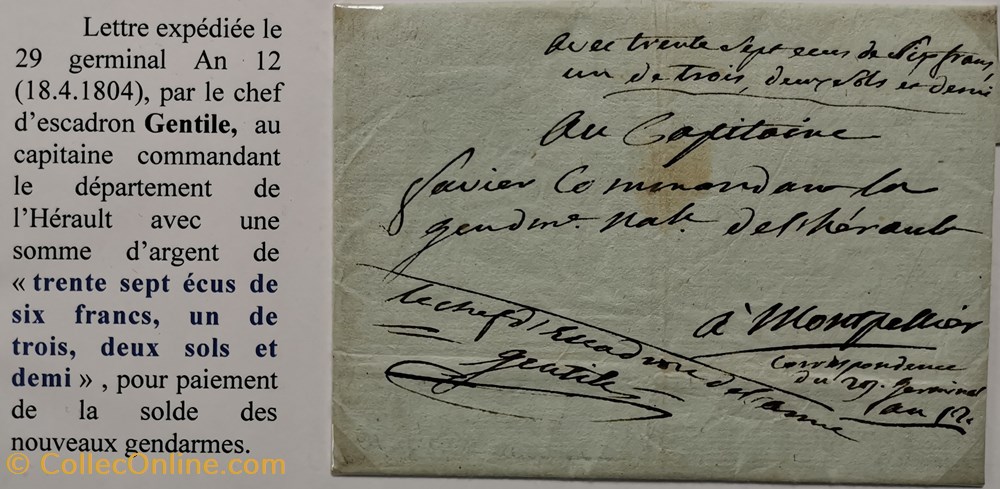 Lettre expédiée le
29 germinal An 12
(18.4.1804), par le chef
d'escadron Gentile, au
capitaine commandant
le département de
l'Hérault avec une
somme d'argent de
« trente sept écus de
six francs, un de
trois, deux sols et
demi » , pour paiement
de la solde des
nouveaux gendarmes.
avec trente sept ecus de Six francs,
un de trois, deux sols et demi
Au Capitaine
Commandant la
gendme. Natle. de l'hérault
à Montpellier
le chef d'Escadron de l'arme
gentile
Correspondance
du 29. germinal
an 12.
© CollecOnline.com